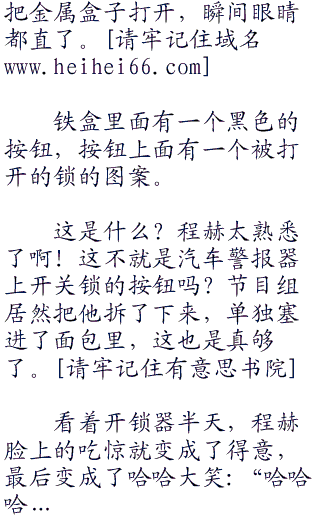 把金属盒子打开，瞬间眼睛
都直了。[请牢记住域名
www.heihei66.com]
铁盒里面有一个黑色的
按钮，按钮上面有一个被打
开的锁的图案。
这是什么？程赫太熟悉
了啊！这不就是汽车警报器
上开关锁的按钮吗？节目组
居然把他拆了下来，单独塞
进了面包里，这也是真够
了。[请牢记住有意思书院]
看着开锁器半天，程赫
脸上的吃惊就变成了得意，
最后变成了哈哈大笑：“哈哈
哈…